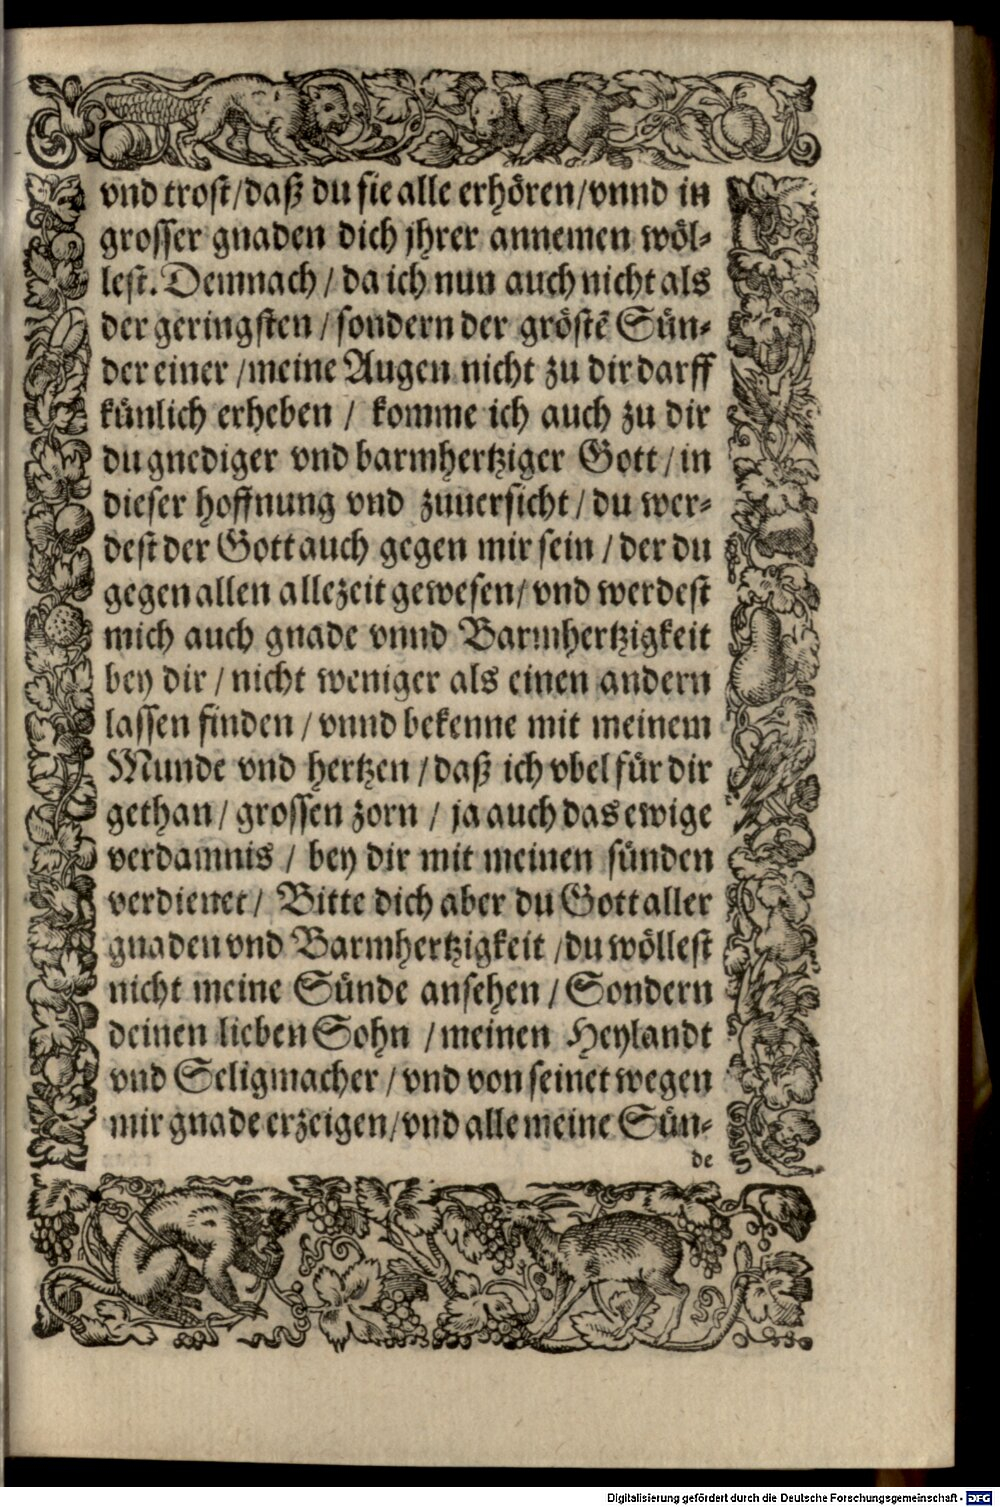 vnd trost/daß du sie alle erhören/vnnd in
grosser gnaden dich jhrer annemen wöl-
lest. Demnach / da ich nun auch nicht als
der geringsten / sondern der gröstē Sün-
der einer /meine Augen nicht zu dir darff
künlich erheben / komme ich auch zu dir
du gnediger vnd barmhertziger Gott / in
dieser hoffnung vnd zuuersicht / du wer-
dest der Gott auch gegen mir sein / der du
gegen allen allezeit gewesen/ vnd werdest
mich auch gnade vnnd Barmhertzigkeit
bey dir / nicht weniger als einen andern
lassen finden / vnnd bekenne mit meinem
Munde vnd hertzen / daß ich vbel für dir
gethan / grossen zorn / ja auch das ewige
verdamnis / bey dir mit meinen sünden
verdienet / Bitte dich aber du Gott aller
gnaden vnd Barmhertzigkeit /du wöllest
nicht meine Sünde ansehen / Sondern
deinen lieben Sohn / meinen Heylandt
vnd Seligmacher / vnd von seinet wegen
mir gnade erzeigen/vnd alle meine Sün-
de
Digitalisierung gefördert durch die Deutsche Forschungsgemeinschaft - DFG